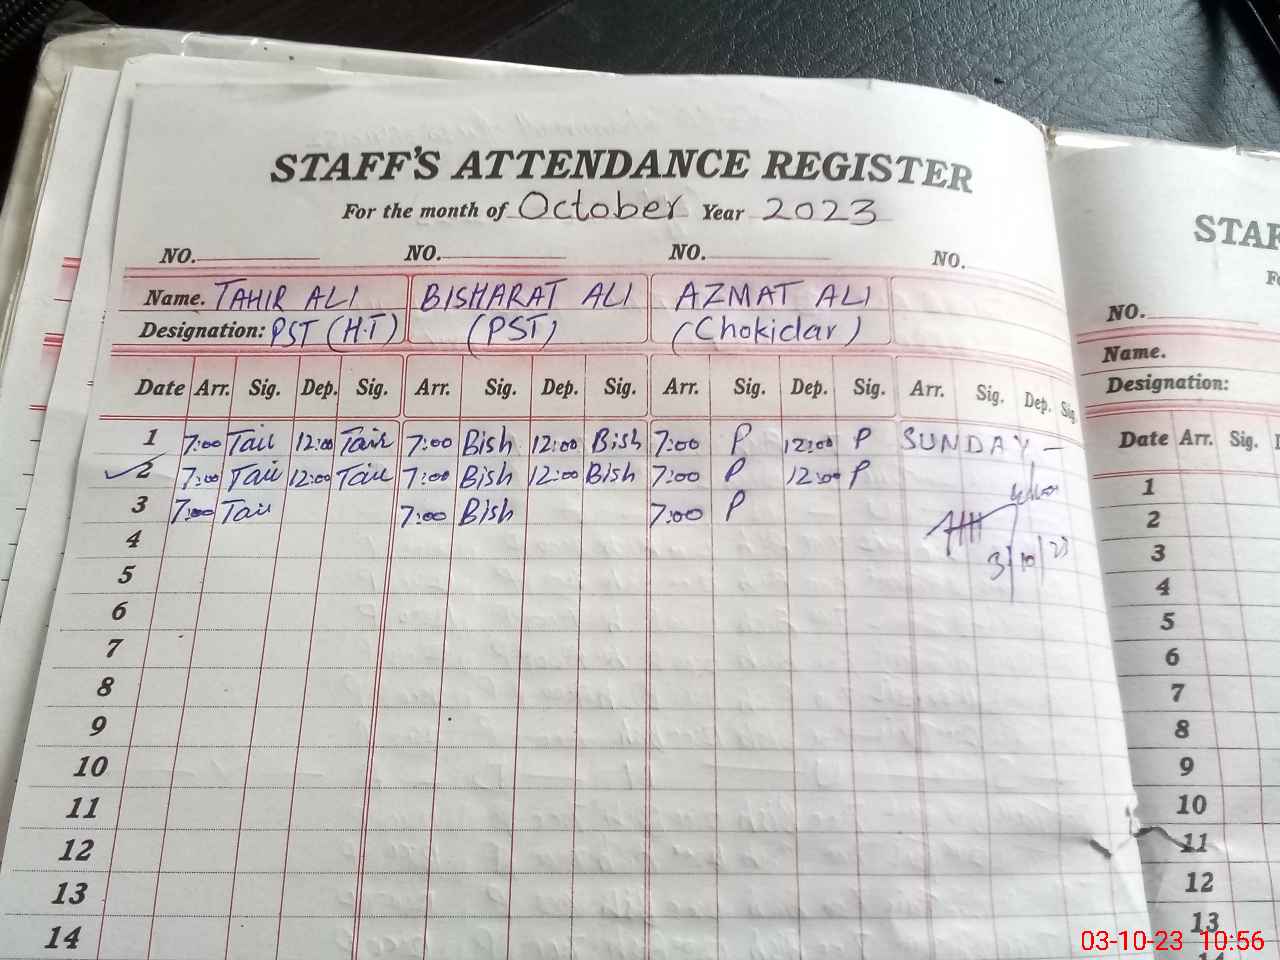 STAFF'S ATTENDANCE REGISTER
For the month of October Year 2023
NO. NO. NO. NO.
Name. TAHIR ALI BISHARAT ALI AZMAT ALI
Designation: PST (H.T) (PST) (Chokidar)
Date Arr. Sig. Dep. Sig. Arr. Sig. Dep. Sig. Arr. Sig. Dep. Sig. Arr. Sig. Dep. Sig.
1 7:00 Tair 12:00 Tair 7:00 Bish 12:00 Bish 7:00 P 12:00 P SUNDAY –
2 7:00 Tair 12:00 Tair 7:00 Bish 12:00 Bish 7:00 P 12:00 P
3 7:00 Tair 7:00 Bish 7:00 P
3/10/23
4
5
6
7
8
9
10
11
12
13
14
STAF
NO.
Name.
Designation:
Date Arr. Sig.
1
2
3
4
5
6
7
8
9
10
11
12
13
03-10-23 10:56